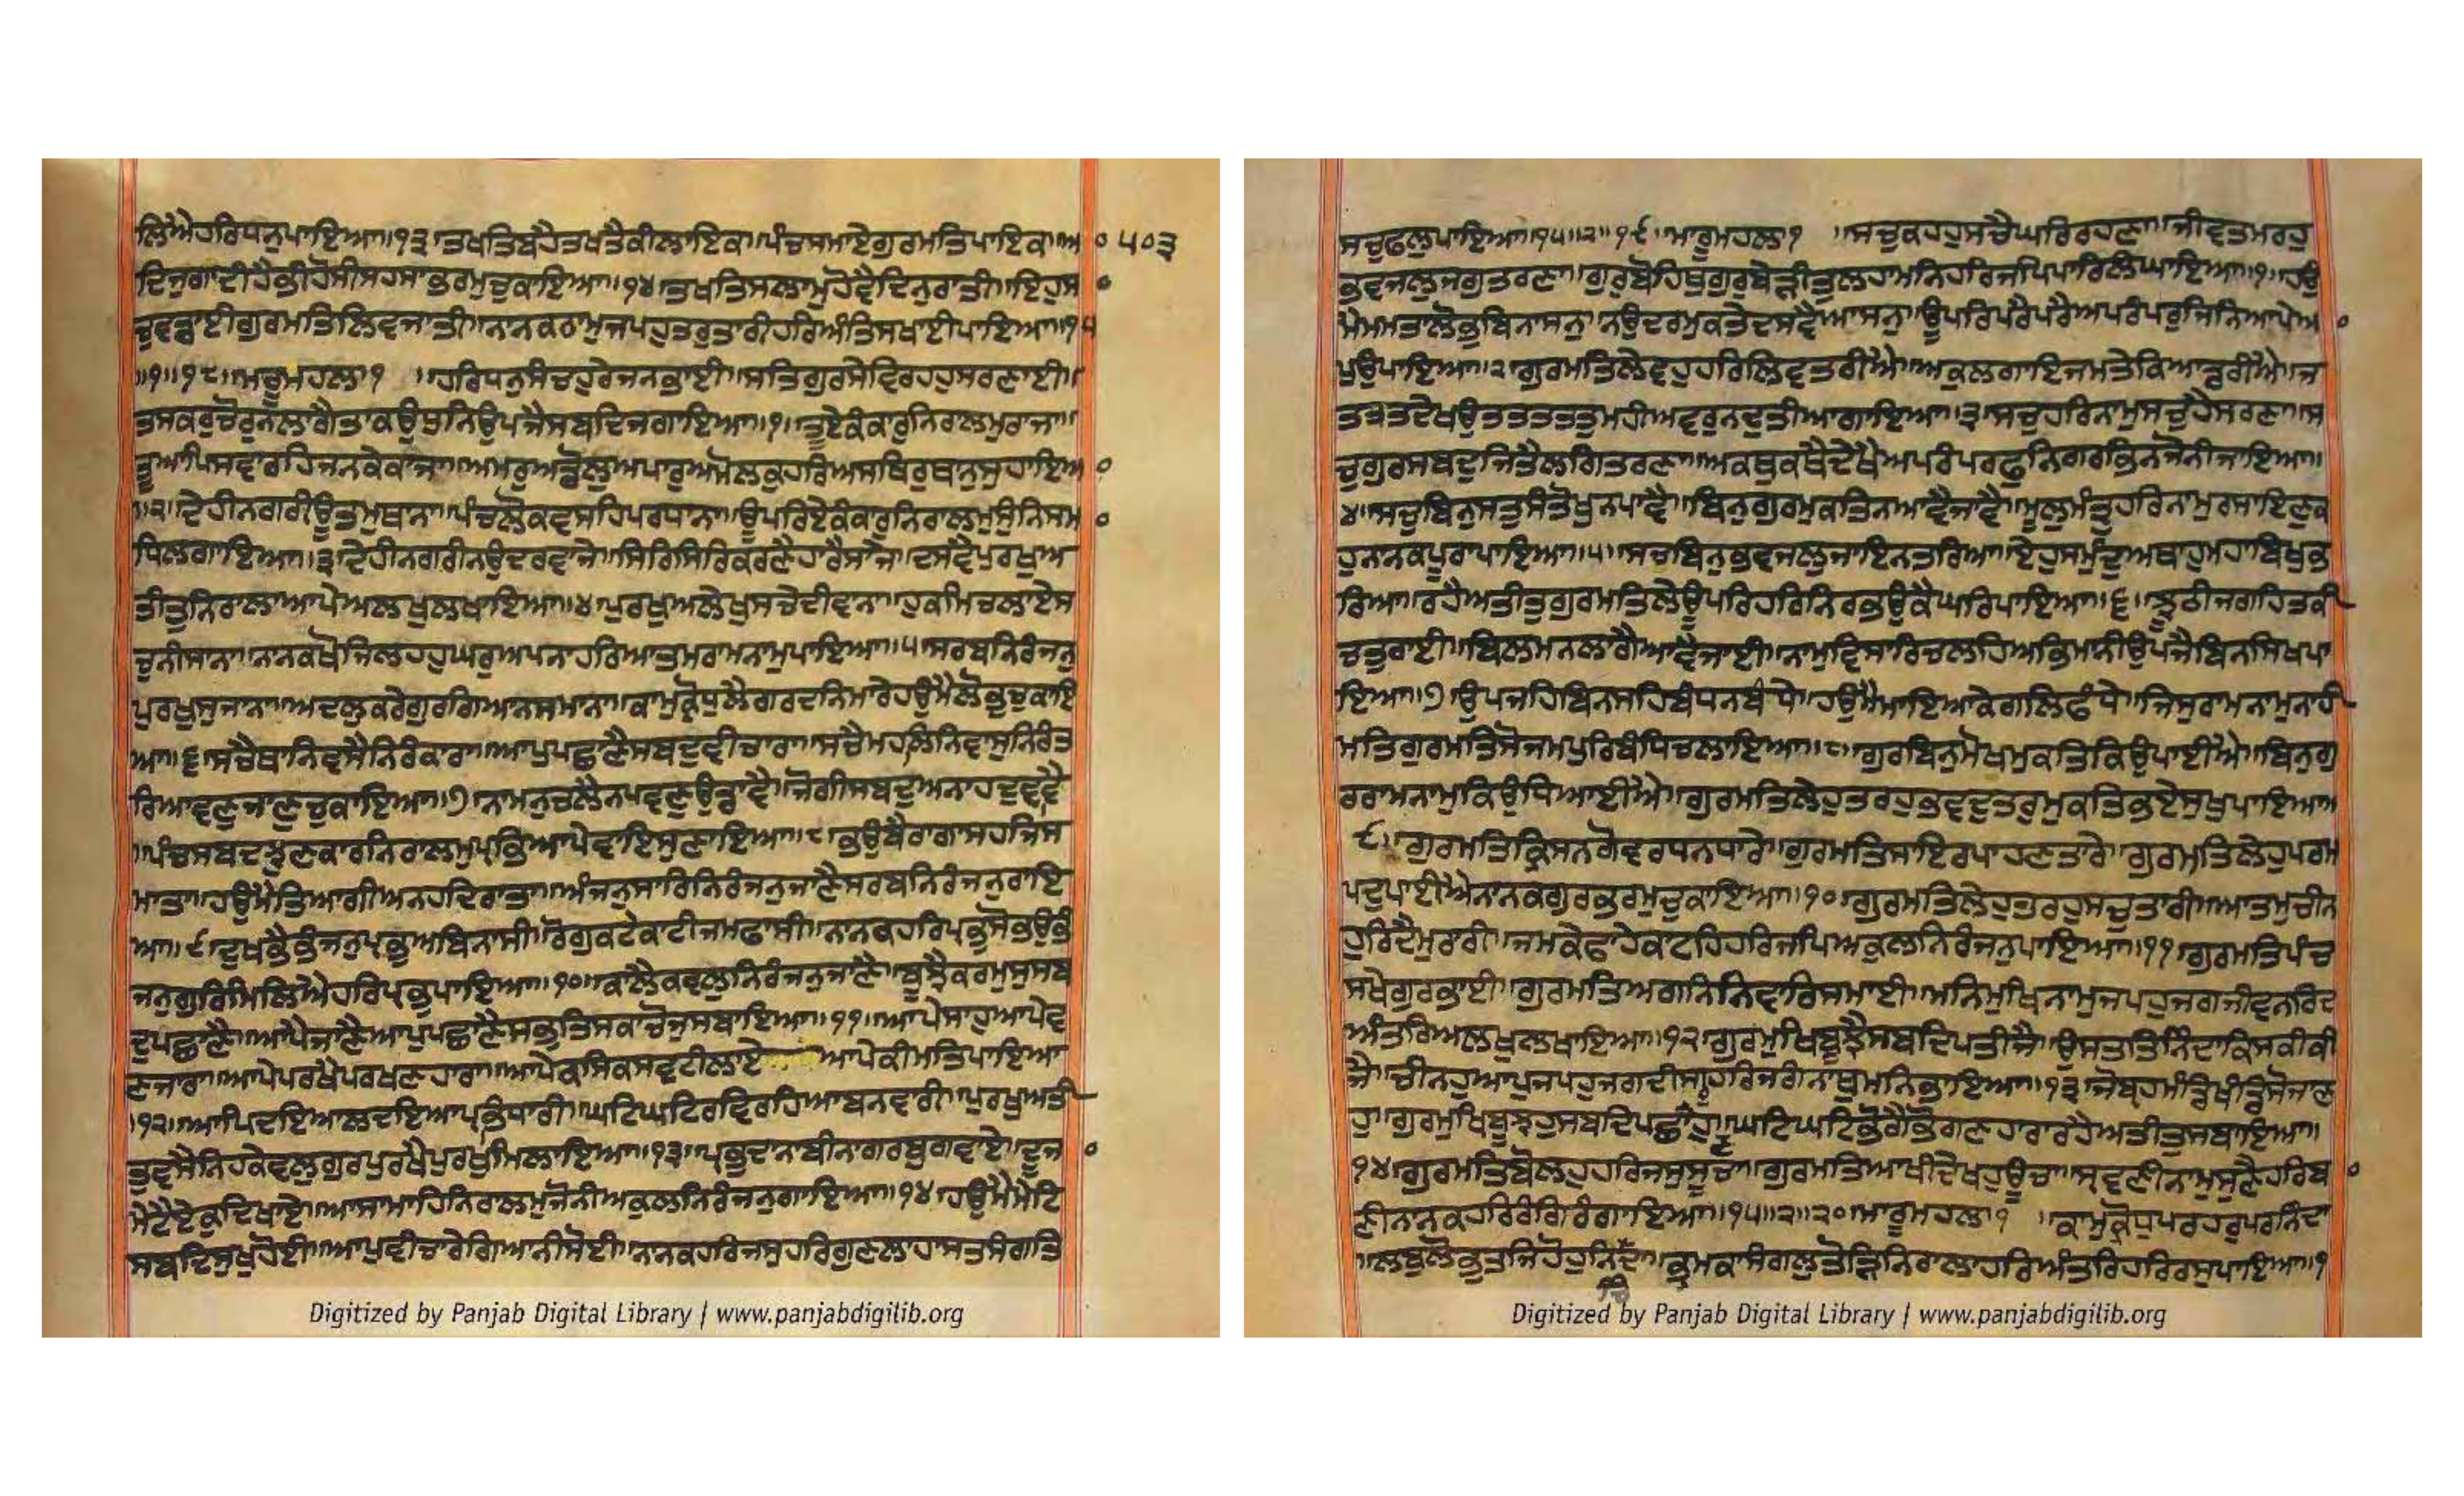 ਲਿਐਹਰਿਧਨੁਪਾਇਆ॥੧੩॥ਤਖਤਿਬਹੈਤਖਤੈਕੀਲਾਇਕ॥ਪੰਚਸਮਾਏਗੁਰਮਤਿਪਾਇਕ॥ਆ ੫੦੩
ਦਿਜੁਗਾਦੀਹੈਭੀਹੋਸੀਸਹਸਾਭਰਮੁਚੁਕਾਇਆ॥੧੪॥ਤਖਤਿਸਲਾਮੁਹੋਵੈਦਿਨੁਰਾਤੀ॥ਇਹੁਸ
ਚੁਵਡਾਈਗੁਰਮਤਿਲਿਵਜਾਤੀ॥ਨਾਨਕਰਾਮੁਜਪਹੁਤਰੁਤਾਰੀਹਰਿਅੰਤਿਸਖਾਈਪਾਇਆ॥੧੫
॥੧॥੧੮॥ਮਾਰੂਮਹਲਾ੧ ॥ਹਰਿਧਨੁਸੰਚਹੁਰੇਜਨਭਾਈ॥ਸਤਿਗੁਰਸੇਵਿਰਹਹੁਸਰਣਾਈ॥
ਤਸਕਰੁਚੋਰੁਨਲਾਗੈਤਾਕਉਧੁਨਿਉਪਜੈਸਬਦਿਜਗਾਇਆ॥੧॥ਤੂਏਕੰਕਾਰੁਨਿਰਾਲਮੁਰਾਜਾ॥
ਤੂਆਪਿਸਵਾਰਹਿਜਨਕੇਕਾਜਾ॥ਅਮਰੁਅਡੋਲੁਅਪਾਰੁਅਮੋਲਕੁਹਰਿਅਸਥਿਰੁਥਾਨੁਸੁਹਾਇਆ
॥੨॥ਦੇਹੀਨਗਰੀਊਤਮੁਥਾਨਾ॥ਪੰਚਲੋਕਵਸਹਿਪਰਧਾਨਾ॥ਊਪਰਿਏਕੰਕਾਰੁਨਿਰਾਲਮੁਸੁੰਨਿਸਮ
ਧਿਲਗਾਇਆ॥੩॥ਦੇਹੀਨਗਰੀਨਉਦਰਵਾਜੇ॥ਸਿਰਿਸਿਰਿਕਰਣੈਹਾਰੈਸਾਜੇ॥ਦਸਵੈਪੁਰਖੁਅ
ਤੀਤੁਨਿਰਾਲਾਆਪੇਅਲਖੁਲਖਾਇਆ॥੪॥ਪੁਰਖੁਅਲੇਖੁਸਚੇਦੀਵਾਨਾ॥ਹੁਕਮਿਚਲਾਏਸ
ਚੁਨੀਸਾਨਾ॥ਨਾਨਕਖੋਜਿਲਹਹੁਘਰੁਅਪਨਾਹਰਿਆਤਮਰਾਮਨਾਮੁਪਾਇਆ॥੫॥ਸਰਬਨਿਰੰਜਨੁ
ਪੁਰਖੁਸੁਜਾਨਾ॥ਅਦਲੁਕਰੇਗੁਰਗਿਆਨਸਮਾਨਾ॥ਕਾਮੁਕ੍ਰੋਧੁਲੈਗਰਦਨਿਮਾਰੇਹਉਮੈਲੋਭੁਚੁਕਾਇ
ਆ॥੬॥ਸਚੈਥਾਨਿਵਸੈਨਿਰੰਕਾਰਾ॥ਆਪੁਪਛਾਣੈਸਬਦੁਵੀਚਾਰਾ॥ਸਚੈਮਹਲਿਨਿਵਾਸੁਨਿਰੰਤ
ਰਿਆਵਣੁਜਾਣੁਚੁਕਾਇਆ॥੭॥ਨਾਮਨੁਚਲੈਨਪਵਣੁਉਡਾਵੈ॥ਜੋਗੀਸਬਦੁਅਨਾਹਦੁਵਾਵੈ
॥ਪੰਚਸਬਦਝੁਣਕਾਰਨਿਰਾਲਮੁਪ੍ਰਭਿਆਪੇਵਾਇਸੁਣਾਇਆ॥੮॥ਭਉਬੈਰਾਗਾਸਹਜਿਸ
ਮਾਤਾ॥ਹਉਮੈਤਿਆਗੀਅਨਹਦਿਰਾਤਾ॥ਅੰਜਨੁਸਾਰਿਨਿਰੰਜਨੁਜਾਣੈਸਰਬਨਿਰੰਜਨੁਰਾਇ
ਆ॥੯॥ਦੁਖਭੈਭੰਜਨੁਪ੍ਰਭੁਅਬਿਨਾਸੀ॥ਰੋਗੁਕਟੇਕਾਟੀਜਮਫਾਸੀ॥ਨਾਨਕਹਰਿਪ੍ਰਭੁਸੋਭਉਭੰ
ਜਨੁਗੁਰਿਮਿਲਿਐਹਰਿਪ੍ਰਭੁਪਾਇਆ॥੧੦॥ਕਾਲੈਕਵਲੁਨਿਰੰਜਨੁਜਾਣੈ॥ਬੂਝੈਕਰਮੁਸੁਸਬ
ਦੁਪਛਾਣੈ॥ਆਪੇਜਾਣੈਆਪੁਪਛਾਣੈਸਭੁਤਿਸਕਾਚੋਜੁਸਬਾਇਆ॥੧੧॥ਆਪੇਸਾਹੁਆਪੇਵ
ਣਜਾਰਾ॥ਆਪੇਪਰਖੈਪਰਖਣਹਾਰਾ॥ਆਪੇਕਸਿਕਸਵਟੀਲਾਏ ਆਪੇਕੀਮਤਿਪਾਇਆ
॥੧੨॥ਆਪਿਦਇਆਲਦਇਆਪ੍ਰਭਿਧਾਰੀ॥ਘਟਿਘਟਿਰਵਿਰਹਿਆਬਨਵਾਰੀ॥ਪੁਰਖੁਅਤੀ
ਤੁਵਸੈਨਿਹਕੇਵਲੁਗੁਰਪੁਰਖੈਪੁਰਖੁਮਿਲਾਇਆ॥੧੩॥ਪ੍ਰਭੁਦਾਨਾਬੀਨਾਗਰਬੁਗਵਾਏ॥ਦੂਜਾ
ਮੇਟੈਏਕੁਦਿਖਾਏ॥ਆਸਾਮਾਹਿਨਿਰਾਲਮੁਜੋਨੀਅਕੁਲਨਿਰੰਜਨੁਗਾਇਆ॥੧੪॥ਹਉਮੈਮੇਟਿ
ਸਬਦਿਸੁਖੁਹੋਈ॥ਆਪੁਵੀਚਾਰੇਗਿਆਨੀਸੋਈ॥ਨਾਨਕਹਰਿਜਸੁਹਰਿਗੁਣਲਾਹਾਸਤਸੰਗਤਿ
ਸਚੁਫਲੁਪਾਇਆ॥੧੫॥੨॥੧੯॥ਮਾਰੂਮਹਲਾ੧ ॥ਸਚੁਕਹਹੁਸਚੈਘਰਿਰਹਣਾ॥ਜੀਵਤਮਰਹੁ
ਭਵਜਲੁਜਗੁਤਰਣਾ॥ਗੁਰੁਬੋਹਿਥੁਗੁਰੁਬੇੜੀਤੁਲਹਾਮਨਿਹਰਿਜਪਿਪਾਰਿਲੰਘਾਇਆ॥੧॥ਹਉ
ਮੈਮਮਤਾਲੋਭੁਬਿਨਾਸਨੁ॥ਨਉਦਰਮੁਕਤੇਦਸਵੈਆਸਨੁ॥ਊਪਰਿਪਰੈਪਰੈਅਪਰੰਪਰੁਜਿਨਿਆਪੇਆ
ਪੁਉਪਾਇਆ॥੨॥ਗੁਰਮਤਿਲੇਵਹੁਹਰਿਲਿਵਤਰੀਐ॥ਅਕੁਲਗਾਇਜਮਤੇਕਿਆਡਰੀਐ॥ਜ
ਤਜਤਦੇਖਉਤਤਤਤਤੁਮਹੀਅਵਰੁਨਦੁਤੀਆਗਾਇਆ॥੩॥ਸਚੁਹਰਿਨਾਮੁਸਚੁਹੈਸਰਣਾ॥ਸ
ਚੁਗੁਰਸਬਦੁਜਿਤੈਲਗਿਤਰਣਾ॥ਅਕਥੁਕਥੈਦੇਖੈਅਪਰੰਪਰਫੁਨਿਗਰਭਿਨਜੋਨੀਜਾਇਆ॥
੪॥ਸਚੁਬਿਨੁਸਤੁਸੰਤੋਖੁਨਪਾਵੈ॥ਬਿਨੁਗੁਰਮੁਕਤਿਨਆਵੈਜਾਵੈ॥ਮੂਲੁਮੰਤ੍ਰੁਹਰਿਨਾਮੁਰਸਾਇਣੁਕ
ਹੁਨਾਨਕਪੂਰਾਪਾਇਆ॥੫॥ਸਚਬਿਨੁਭਵਜਲੁਜਾਇਨਤਰਿਆ॥ਏਹੁਸਮੁੰਦੁਅਥਾਹੁਮਹਾਬਿਖੁਭ
ਰਿਆ॥ਰਹੈਅਤੀਤੁਗੁਰਮਤਿਲੇਊਪਰਿਹਰਿਨਿਰਭਉਕੈਘਰਿਪਾਇਆ॥੬॥ਝੂਠੀਜਗਹਿਤਕੀ
ਚਤੁਰਾਈ॥ਬਿਲਮਨਲਾਗੈਆਵੈਜਾਈ॥ਨਾਮੁਵਿਸਾਰਿਚਲਹਿਅਭਿਮਾਨੀਉਪਜੈਬਿਨਸਿਖਪਾ
ਇਆ॥੭॥ਉਪਜਹਿਬਿਨਸਹਿਬੰਧਨਬੰਧੇ॥ਹਉਮੈਮਾਇਆਕੇਗਲਿਫੰਧੇ॥ਜਿਸੁਰਾਮਨਾਮੁਨਾਹੀ
ਮਤਿਗੁਰਮਤਿਸੋਜਮਪੁਰਿਬੰਧਿਚਲਾਇਆ॥੮॥ਗੁਰਬਿਨੁਮੋਖਮੁਕਤਿਕਿਉਪਾਈਐ॥ਬਿਨੁਗੁ
ਰਰਾਮਨਾਮੁਕਿਉਧਿਆਈਐ॥ਗੁਰਮਤਿਲੇਹੁਤਰਹੁਭਵਦੁਤਰੁਮੁਕਤਿਭਏਸੁਖੁਪਾਇਆ॥
੯॥ਗੁਰਮਤਿਕ੍ਰਿਸਨਗੋਵਰਧਨਧਾਰੇ॥ਗੁਰਮਤਿਸਾਇਰਪਾਹਣਤਾਰੇ॥ਗੁਰਮਤਿਲੇਹੁਪਰਮ
ਪਦੁਪਾਈਐਨਾਨਕਗੁਰਭਰਮੁਚੁਕਾਇਆ॥੧੦॥ਗੁਰਮਤਿਲੇਹੁਤਰਹੁਸਚੁਤਾਰੀ॥ਆਤਮੁਚੀਨ
ਹੁਰਿਦੈਮੁਰਾਰੀ॥ਜਮਕੇਫਾਹੇਕਾਟਹਿਹਰਿਜਪਿਅਕੁਲਨਿਰੰਜਨੁਪਾਇਆ॥੧੧॥ਗੁਰਮਤਿਪੰਚ
ਸਖੇਗੁਰਭਾਈ॥ਗੁਰਮਤਿਅਗਨਿਨਿਵਾਰਿਸਮਾਈ॥ਮਨਿਮੁਖਿਨਾਮੁਜਪਹੁਜਗਜੀਵਨਰਿਦ
ਅੰਤਰਿਅਲਖੁਲਖਾਇਆ॥੧੨॥ਗੁਰਮੁਖਿਬੂਝੈਸਬਦਿਪਤੀਜੈ॥ਉਸਤਤਿਨਿੰਦਾਕਿਸਕੀਕੀ
ਜੈ॥ਚੀਨਹੁਆਪੁਜਪਹੁਜਗਦੀਸਰੁਹਰਿਜਗੰਨਾਥੁਮਨਿਭਾਇਆ॥੧੩॥ਜੋਬ੍ਰਹਮੰਡਿਖੰਡਿਸੋਜਾਣ
ਹੁ॥ਗੁਰਮੁਖਿਬੂਝਹੁਸਬਦਿਪਛਾਣਹੁ॥ਘਟਿਘਟਿਭੋਗੇਭੋਗਣਹਾਰਾਰਹੈਅਤੀਤੁਸਬਾਇਆ॥
੧੪॥ਗੁਰਮਤਿਬੋਲਹੁਹਰਿਜਸੁਸੂਚਾ॥ਗੁਰਮਤਿਆਖੀਦੇਖਹੁਊਚਾ॥ਸ੍ਰਵਣੀਨਾਮੁਸੁਣੈਹਰਿਬਾ
ਣੀਨਾਨਕਹਰਿਰੰਗਿਰੰਗਾਇਆ॥੧੫॥੩॥੨੦॥ਮਾਰੂਮਹਲਾ੧ ॥ਕਾਮੁਕ੍ਰੋਧੁਪਰਹਰੁਪਰਨਿੰਦਾ
॥ਲਬੁਲੋਭੁਤਜਿਹੋਹੁਨਿਚਿੰਦਾ॥ਭ੍ਰਮਕਾਸੰਗਲੁਤੋੜਿਨਿਰਾਲਾਹਰਿਅੰਤਰਿਹਰਿਰਸੁਪਾਇਆ॥੧
Digitized by Panjab Digital Library | www.panjabdigilib.org
Digitized by Panjab Digital Library | www.panjabdigilib.org